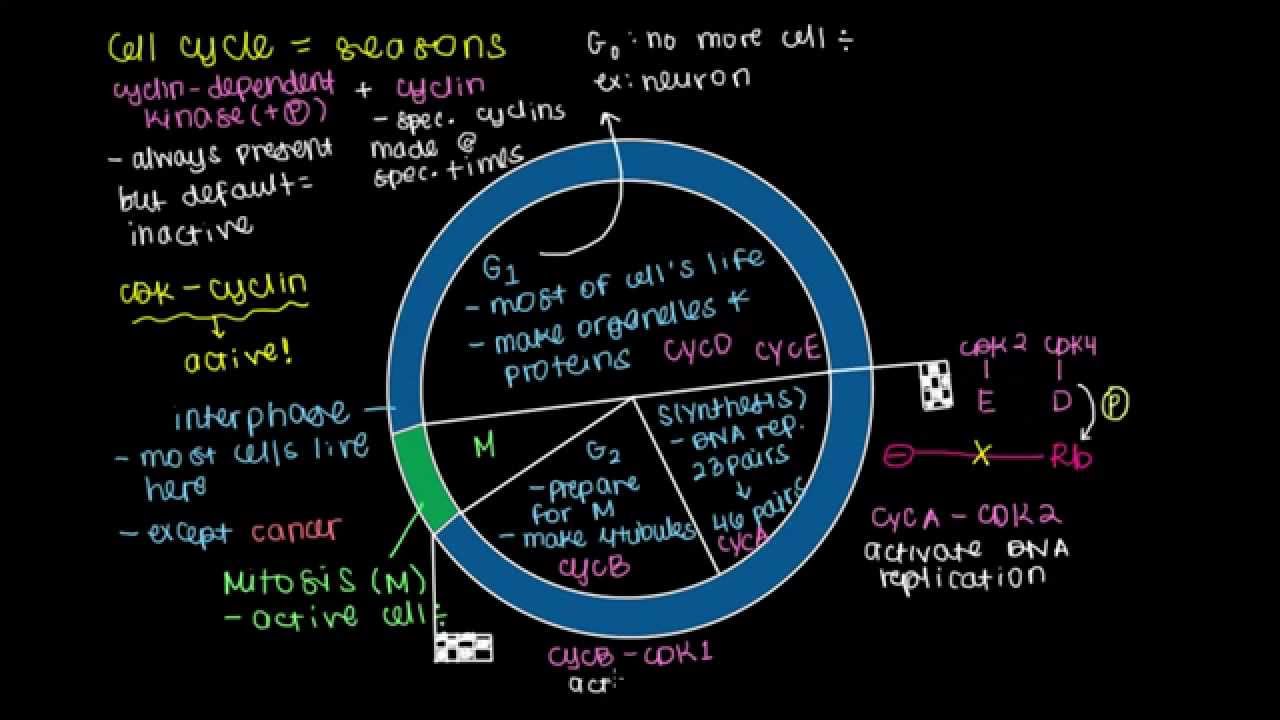 cell cycle = seasons
cyclin-dependent + cyclin
kinase (+ P)
- always present
but default =
inactive
- spec. cyclins
made @
spec. times
CDK - cyclin
active!
interphase
- most cells live
here
- except cancer
Mitosis (M)
- active cell ÷
G0 : no more cell ÷
ex: neuron
G1
- most of cell's life
- make organelles +
proteins
CYCD CYCE
S(ynthesis)
- DNA rep.
23 pairs
↓
46 pairs
CYCA
G2
- prepare
for M
- make μtubules
CYCB
M
CDK2 CDK4
E D P
⊖ X Rb
CYCA - CDK2
activate DNA
replication
CYCB - CDK1
acti